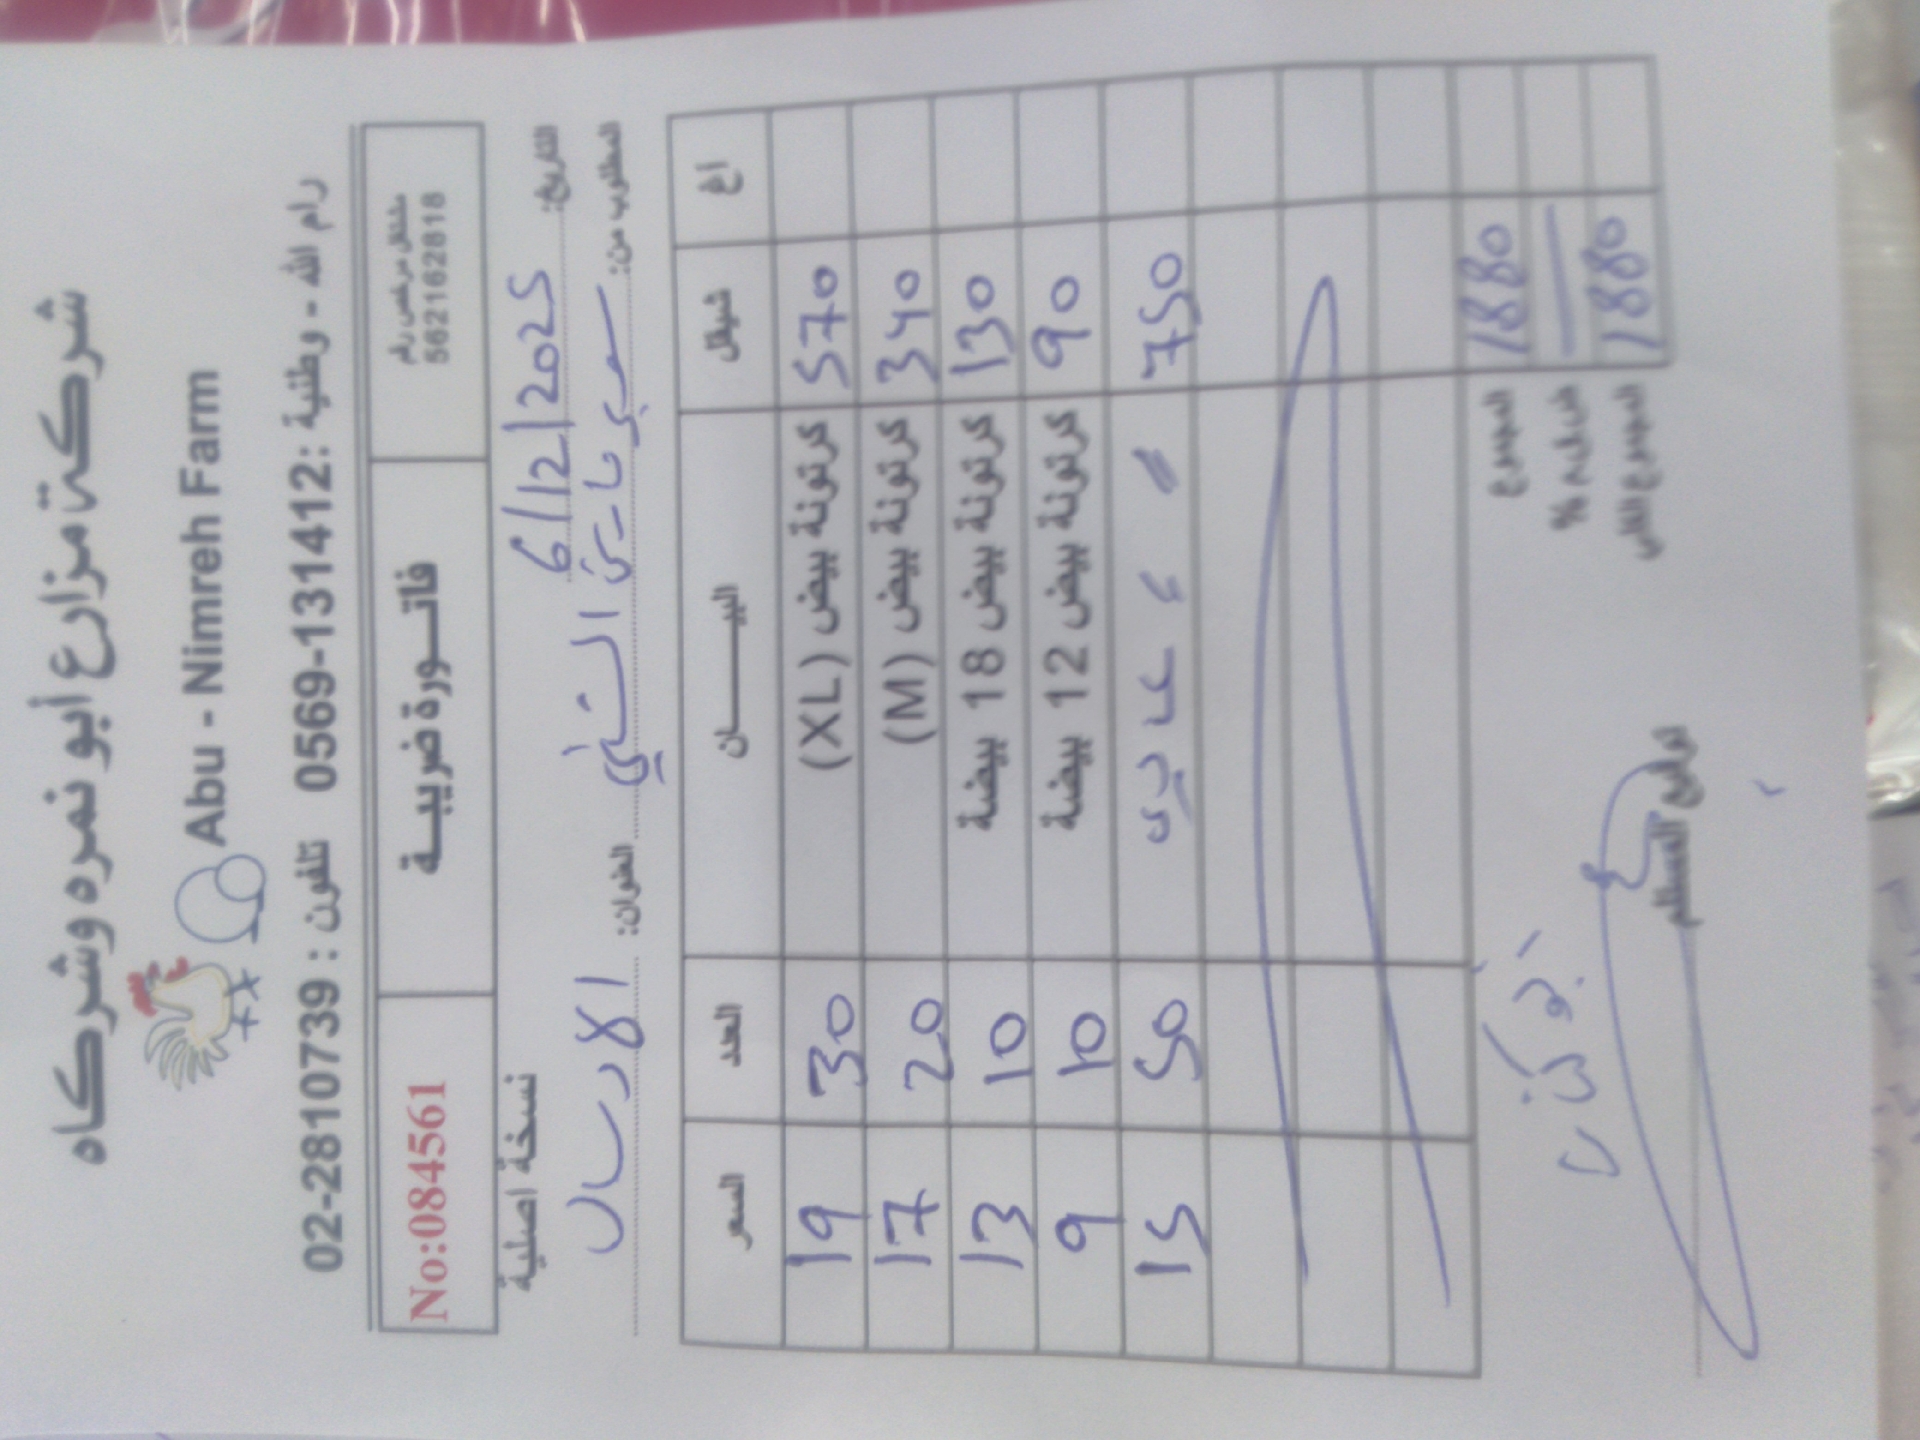 شركة مزارع أبو نمره وشركاه
Abu - Nimreh Farm
رام الله - وطنية: 0569-131412 تلفون: 02-2810739
مشتغل مرخص رقم 562162818
فاتورة ضريبية
No:084561
التاريخ: 6/12/2025
نسخة اصلية
المطلوب من: سوبر ماركت العنوان: الارسال
أغ شيقل البيان العدد السعر
570 كرتونة بيض (XL) 30 19
340 كرتونة بيض (M) 20 17
130 كرتونة بيض 18 بيضة 10 13
90 كرتونة بيض 12 بيضة 10 9
750 〃 〃 عادي 50 15
المجموع 1880
ض.ق.م %
المجموع الكلي 1880
توقيع المستلم